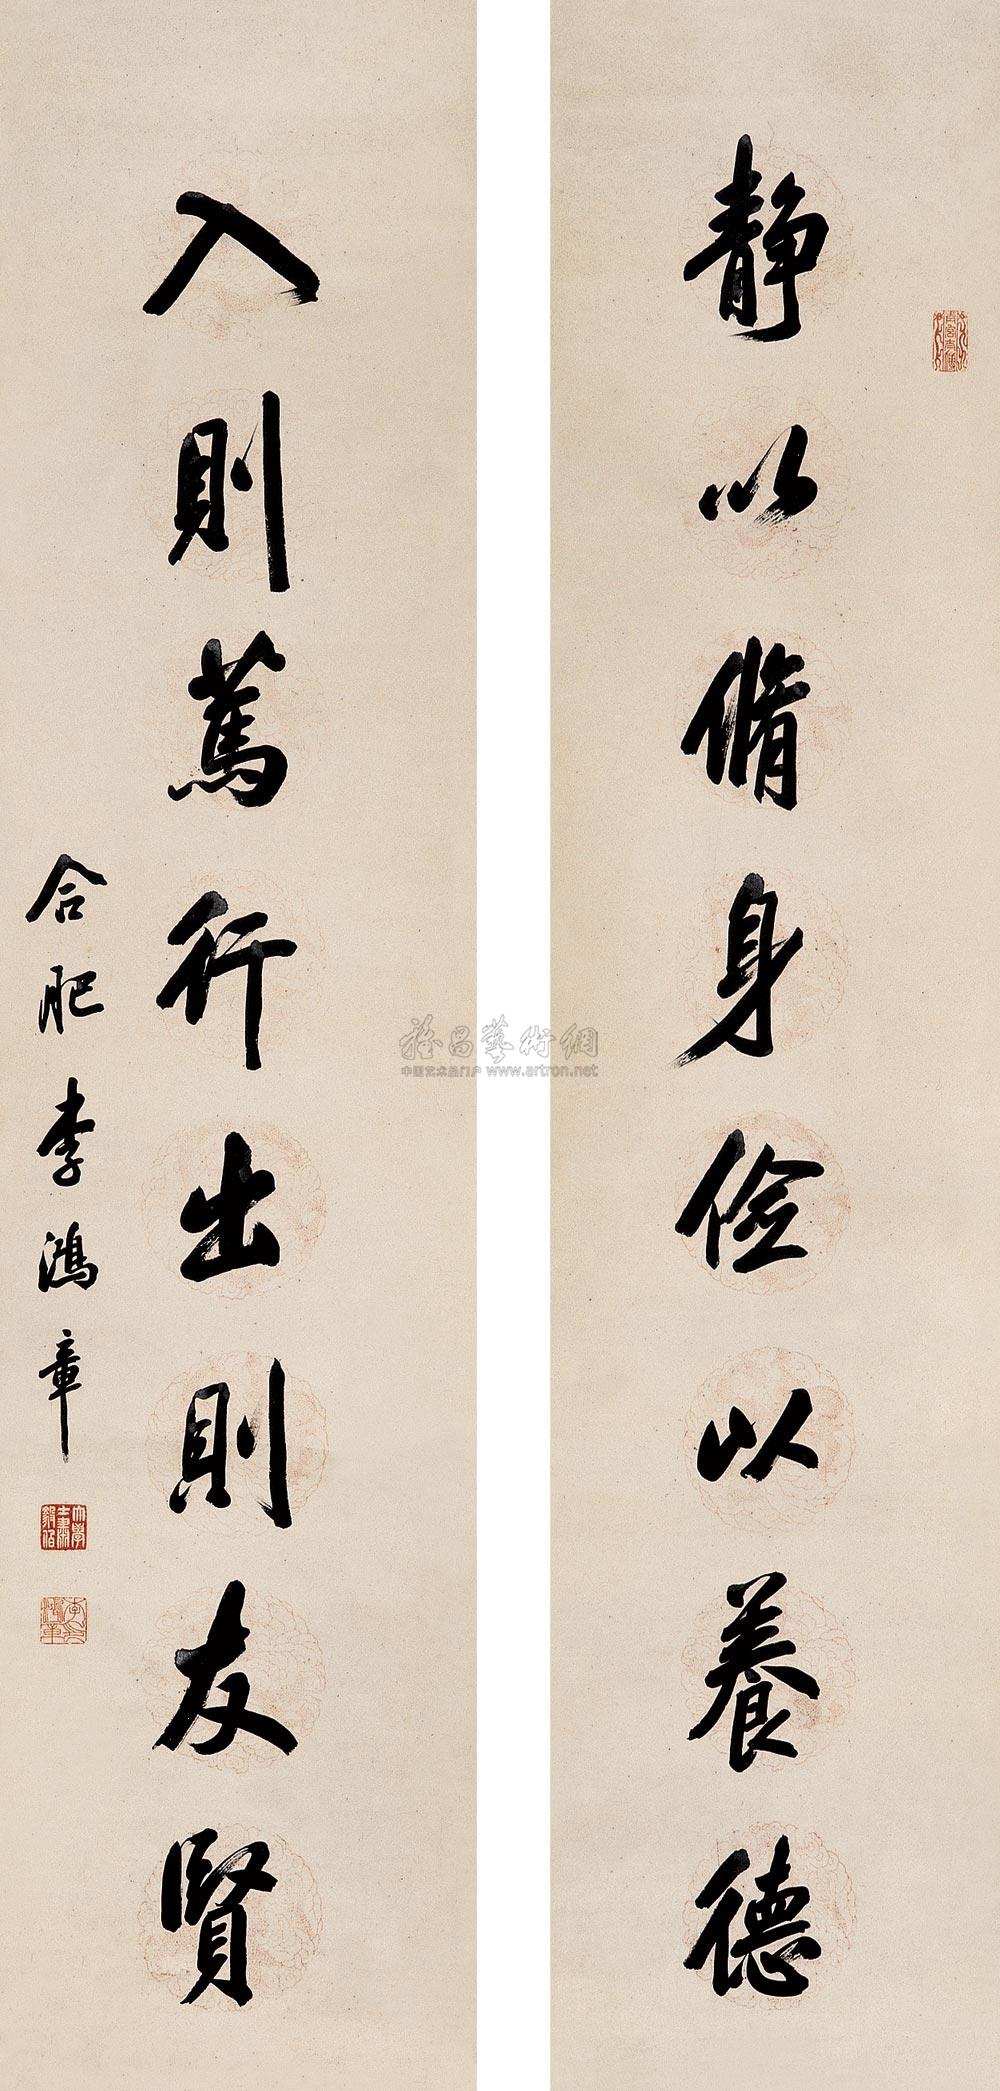 静以脩身儉以養德
入則篤行出則友賢
合肥李鴻章
大學士肅毅伯
雅昌藝術網
中国艺术品门户 www.artron.net